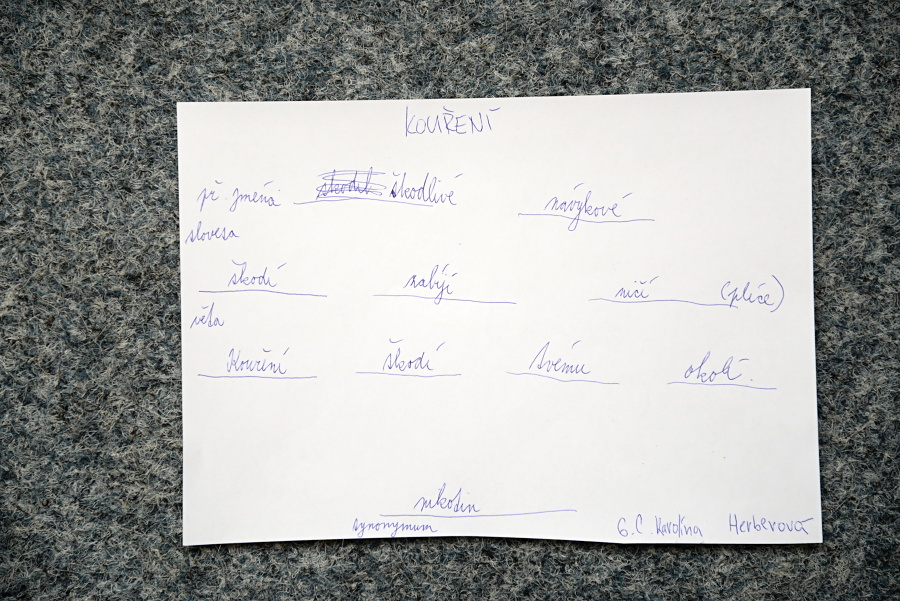 KOUŘENÍ
př. jména škodlivé návykové
slovesa
škodí zabíjí ničí (plíce)
věta
Kouření škodí svému okolí.
nikotin
synonymum
6.C Karolína Herberová